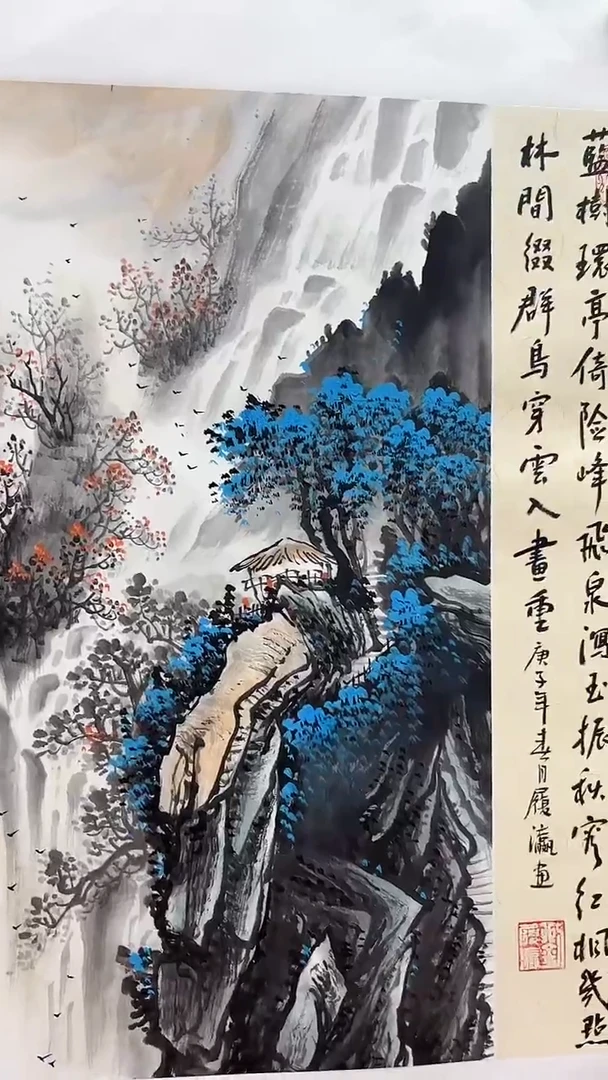 藍樹環亭倚險峰飛泉瀉玉振秋容紅楓幾點
林間綴群鳥穿雲入畫重庚子年春月履瀛畫